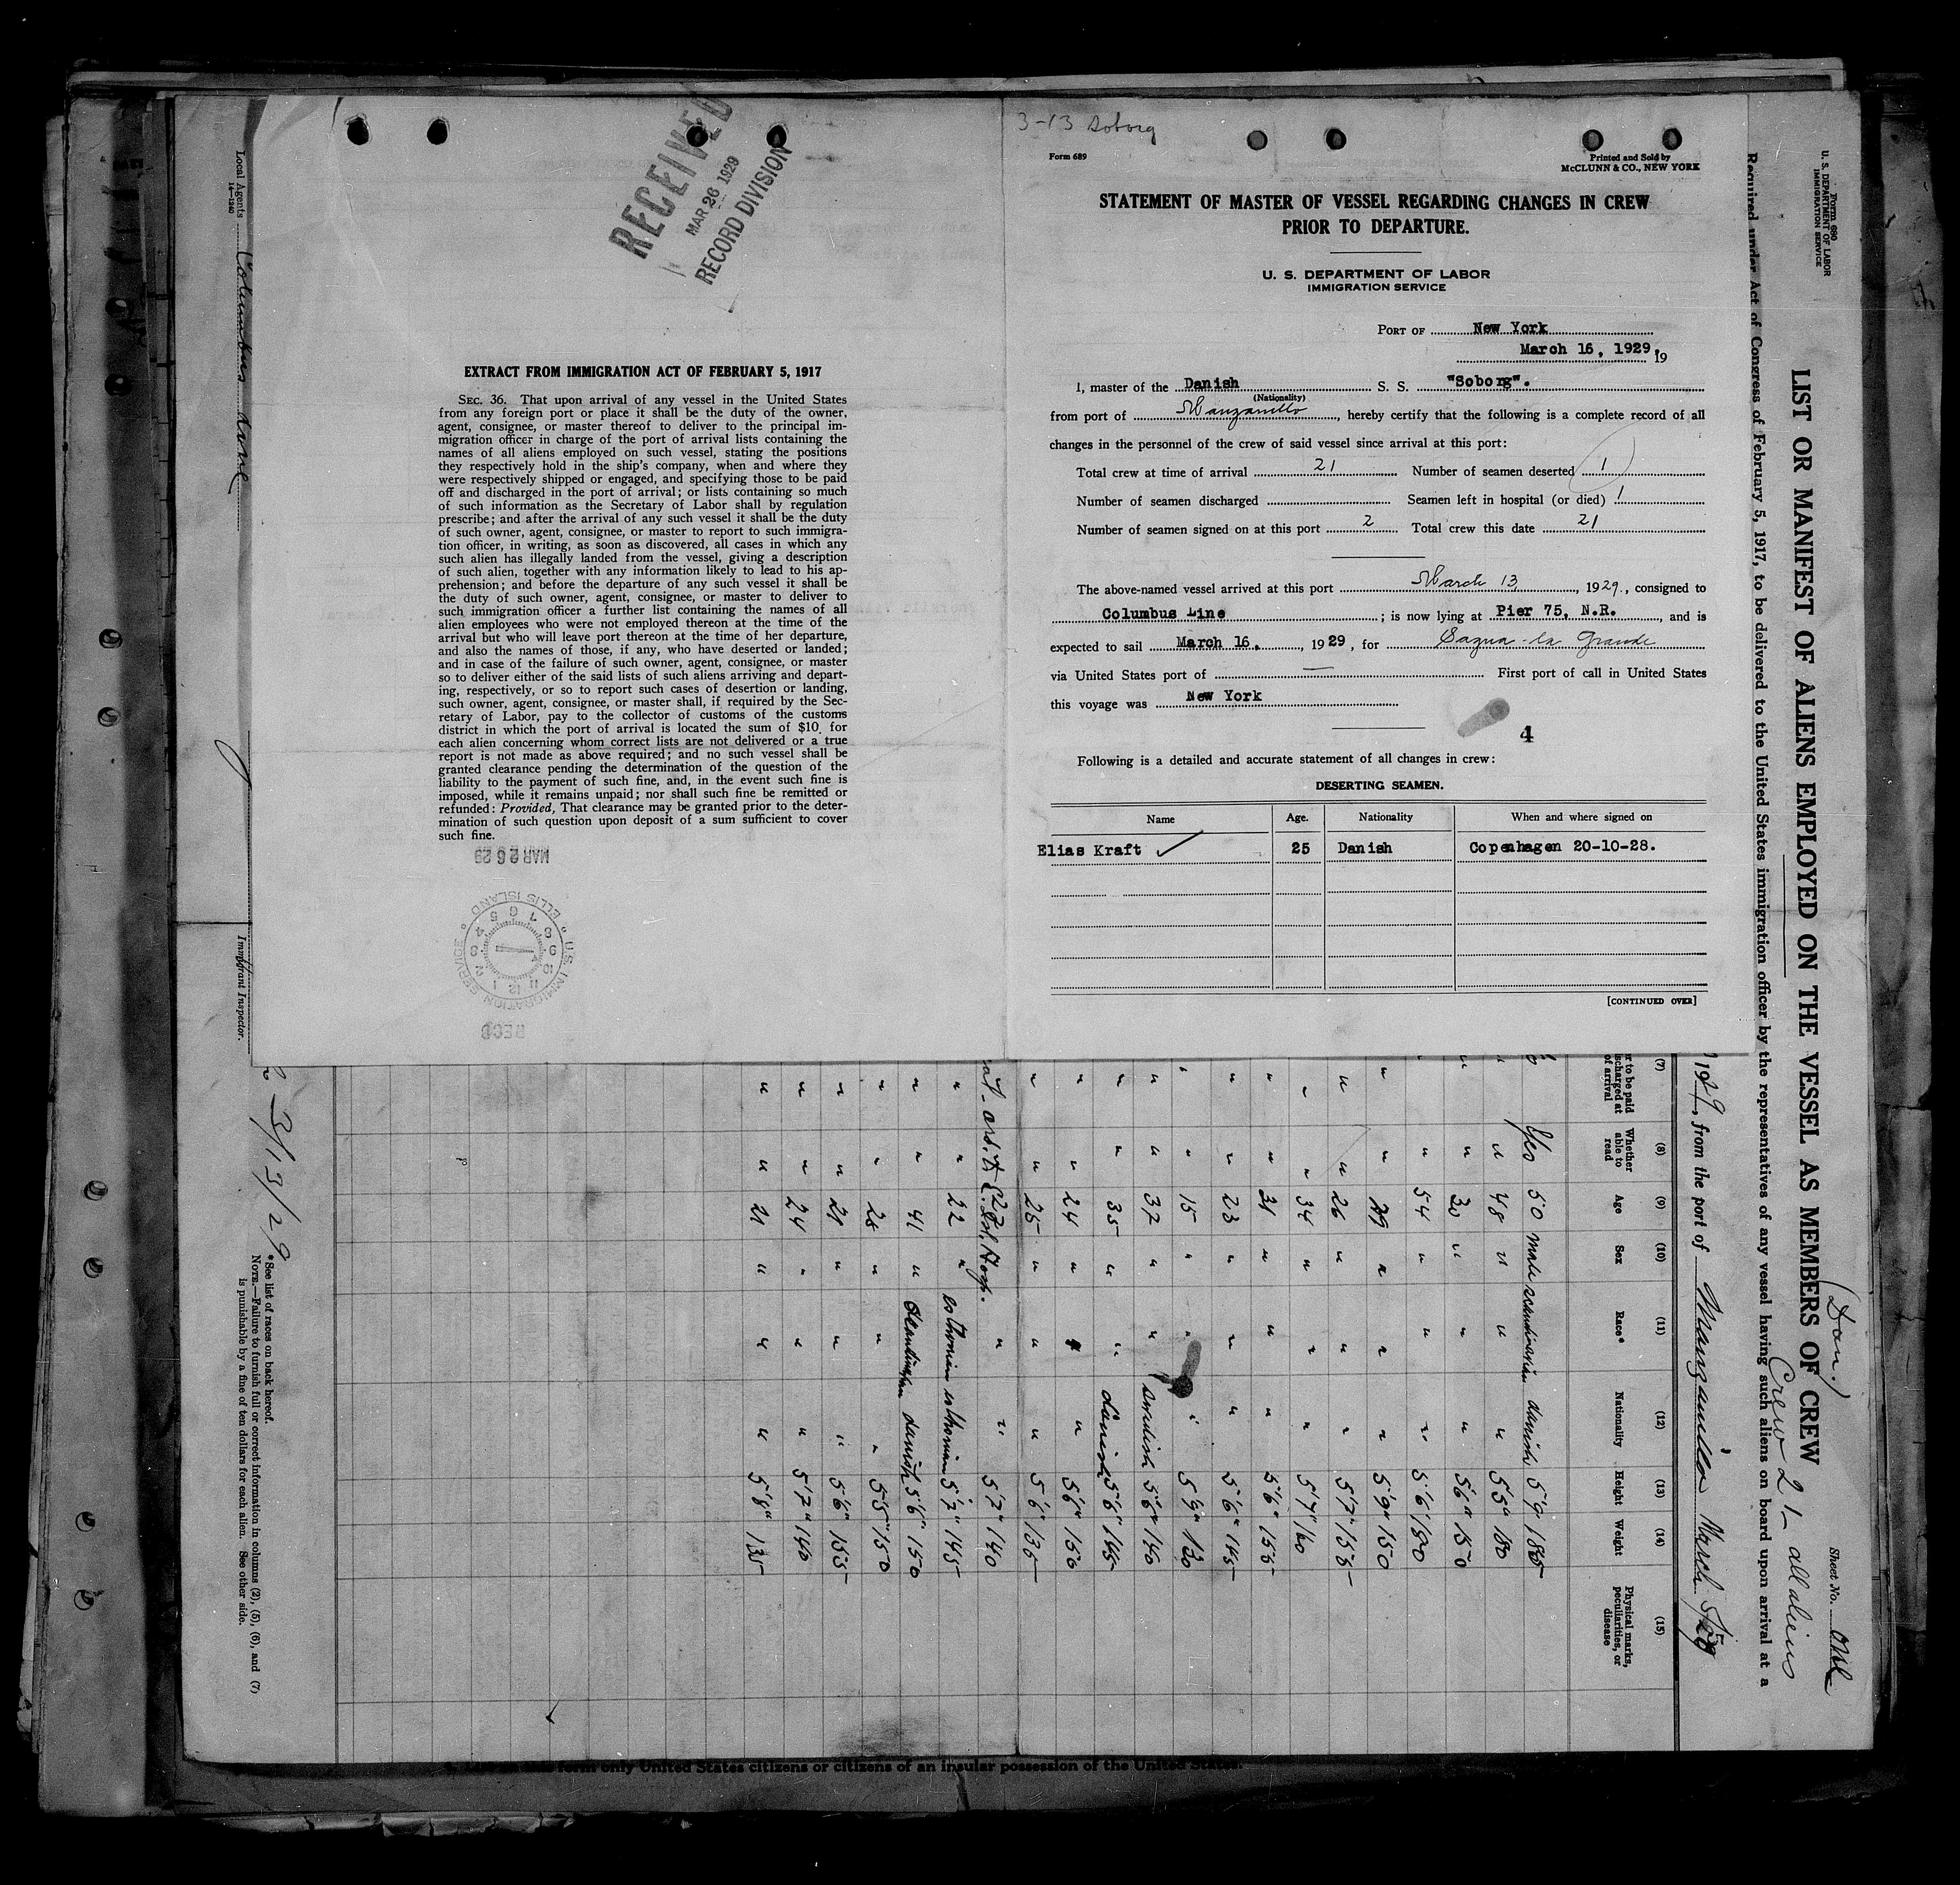 RECEIVED
MAR 26 1929
RECORD DIVISION
EXTRACT FROM IMMIGRATION ACT OF FEBRUARY 5, 1917
SEC. 36. That upon arrival of any vessel in the United States
from any foreign port or place it shall be the duty of the owner,
agent, consignee, or master thereof to deliver to the principal im-
migration officer in charge of the port of arrival lists containing the
names of all aliens employed on such vessel, stating the positions
they respectively hold in the ship's company, when and where they
were respectively shipped or engaged, and specifying those to be paid
off and discharged in the port of arrival; or lists containing so much
of such information as the Secretary of Labor shall by regulation
prescribe; and after the arrival of any such vessel it shall be the duty
of such owner, agent, consignee, or master to report to such immigra-
tion officer, in writing, as soon as discovered, all cases in which any
such alien has illegally landed from the vessel, giving a description
of such alien, together with any information likely to lead to his ap-
prehension; and before the departure of any such vessel it shall be
the duty of such owner, agent, consignee, or master to deliver to
such immigration officer a further list containing the names of all
alien employees who were not employed thereon at the time of the
arrival but who will leave port thereon at the time of her departure,
and also the names of those, if any, who have deserted or landed;
and in case of the failure of such owner, agent, consignee, or master
so to deliver either of the said lists of such aliens arriving and depart-
ing, respectively, or so to report such cases of desertion or landing,
such owner, agent, consignee, or master shall, if required by the Sec-
retary of Labor, pay to the collector of customs of the customs
district in which the port of arrival is located the sum of $10 for
each alien concerning whom correct lists are not delivered or a true
report is not made as above required; and no such vessel shall be
granted clearance pending the determination of the question of the
liability to the payment of such fine, and, in the event such fine is
imposed, while it remains unpaid; nor shall such fine be remitted or
refunded: Provided, That clearance may be granted prior to the deter-
mination of such question upon deposit of a sum sufficient to cover
such fine.
MAR 26 29
U.S. IMMIGRATION SERVICE ELLIS ISLAND
RECD
3-13 Soborg
Form 689
Printed and Sold by
McCLUNN & CO., NEW YORK
STATEMENT OF MASTER OF VESSEL REGARDING CHANGES IN CREW
PRIOR TO DEPARTURE.
U. S. DEPARTMENT OF LABOR
IMMIGRATION SERVICE
PORT OF New York
March 16, 1929, 19
I, master of the Danish S. S. "Soborg".
(Nationality)
from port of Manzanillo, hereby certify that the following is a complete record of all
changes in the personnel of the crew of said vessel since arrival at this port:
Total crew at time of arrival 21 Number of seamen deserted 1
Number of seamen discharged Seamen left in hospital (or died) 1
Number of seamen signed on at this port 2 Total crew this date 21
The above-named vessel arrived at this port March 13, 1929, consigned to
Columbus Line; is now lying at Pier 75, N.R., and is
expected to sail March 16, 1929, for Sagua-la Grande
via United States port of — First port of call in United States
this voyage was New York
4
Following is a detailed and accurate statement of all changes in crew:
DESERTING SEAMEN.
Name Age. Nationality When and where signed on
Elias Kraft 25 Danish Copenhagen 20-10-28.
[CONTINUED OVER]
Form 680
U. S. DEPARTMENT OF LABOR
IMMIGRATION SERVICE
Sheet No. One
(Dan.)
Crew 21 - all aliens
LIST OR MANIFEST OF ALIENS EMPLOYED ON THE VESSEL AS MEMBERS OF CREW
Required under Act of Congress of February 5, 1917, to be delivered to the United States immigration officer by the representatives of any vessel having such aliens on board upon arrival at a
1929, from the port of Manzanillo March
(7) (8) (9) (10) (11) (12) (13) (14) (15)
Whether able to read Age Sex Race* Nationality Height Weight Physical marks, peculiarities, or disease
Yes 50 male scandinavian danish 5'9" 185
" 48 " " " 5'5" 180
" 30 " " " 5'6" 150
" 54 " " " 5'6" 180
" 29 " " " 5'9" 150
" 26 " " " 5'7" 155
" 34 " " " 5'7" 160
" 31 " " " 5'6" 155
" 23 " " " 5'6" 145
" 15 " " " 5'9" 130
" 37 " " swedish 5'6" 140
" 35 " " danish 5'6" 145
" 24 " " " 5'6" 150
" 25 " " " 5'6" 135
" " 5'7" 140
" 22 " esthonian esthonian 5'7" 145
" 41 " scandinavian danish 5'6" 150
" 25 " " " 5'5" 150
" 21 " " " 5'6" 155
" 24 " " " 5'7" 140
" 21 " " " 5'8" 135
*See list of races on back hereof.
NOTE.—Failure to furnish full or correct information in columns (2), (5), (6), and (7)
is punishable by a fine of ten dollars for each alien. See other side.
3/13/29
Local Agents Columbus Line
14—1240
Immigrant Inspector.
form only United States citizens or citizens of an insular possession of the United States.